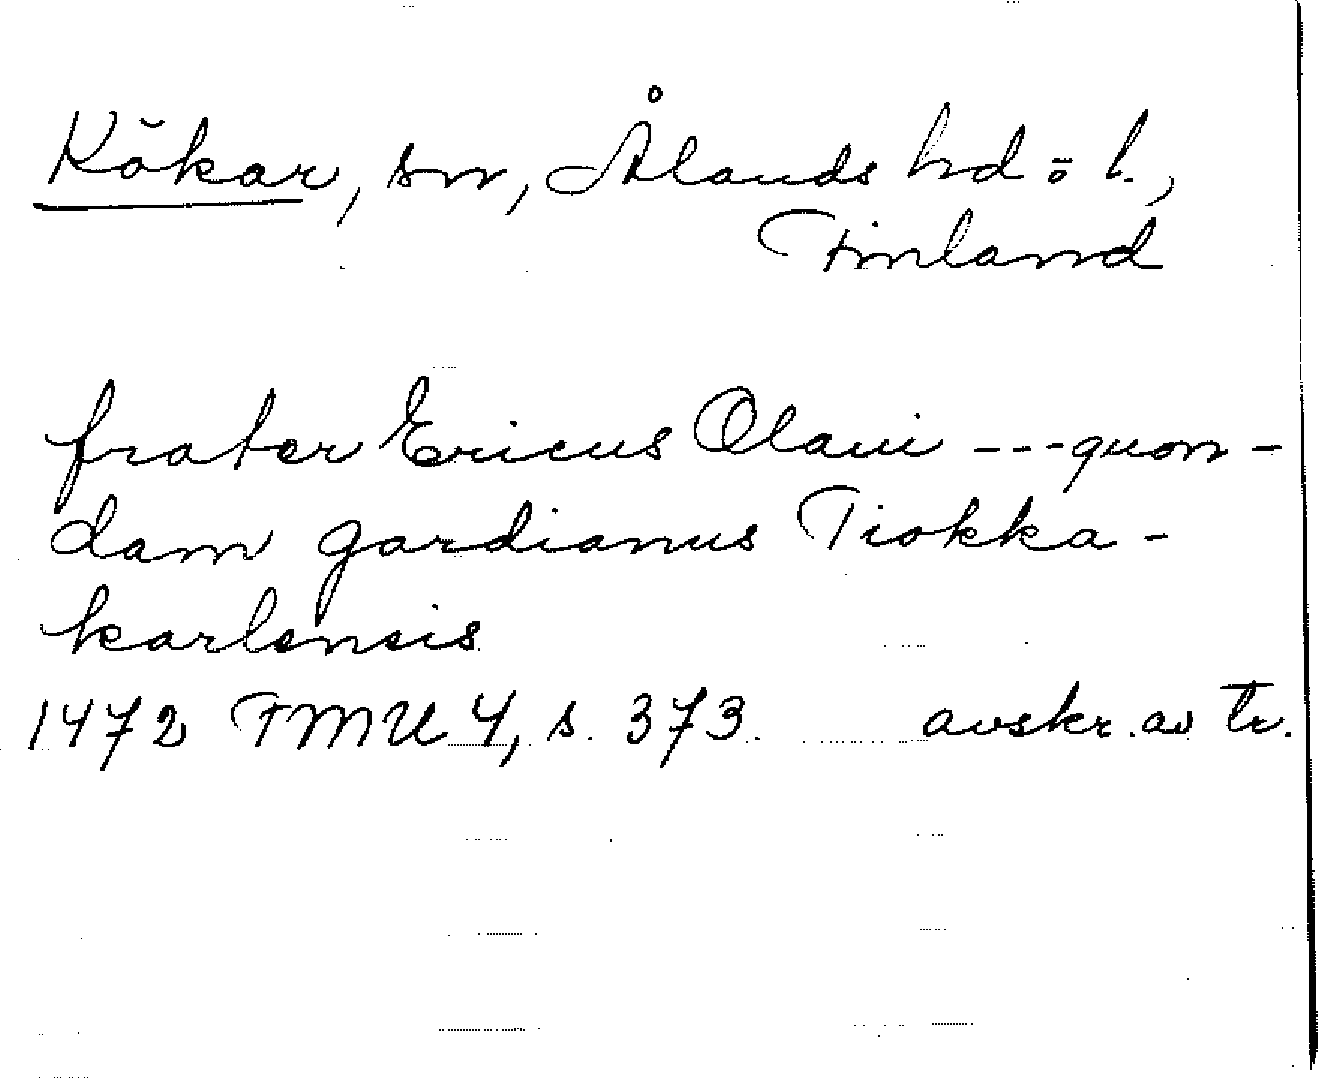 Kökar, sn, Ålands hd o l.,
Finland
frater Ericus Olaui --- quon-
dam gardianus Tiokka-
karlensis
1472 FMU 4, s. 373. avskr. av tr.